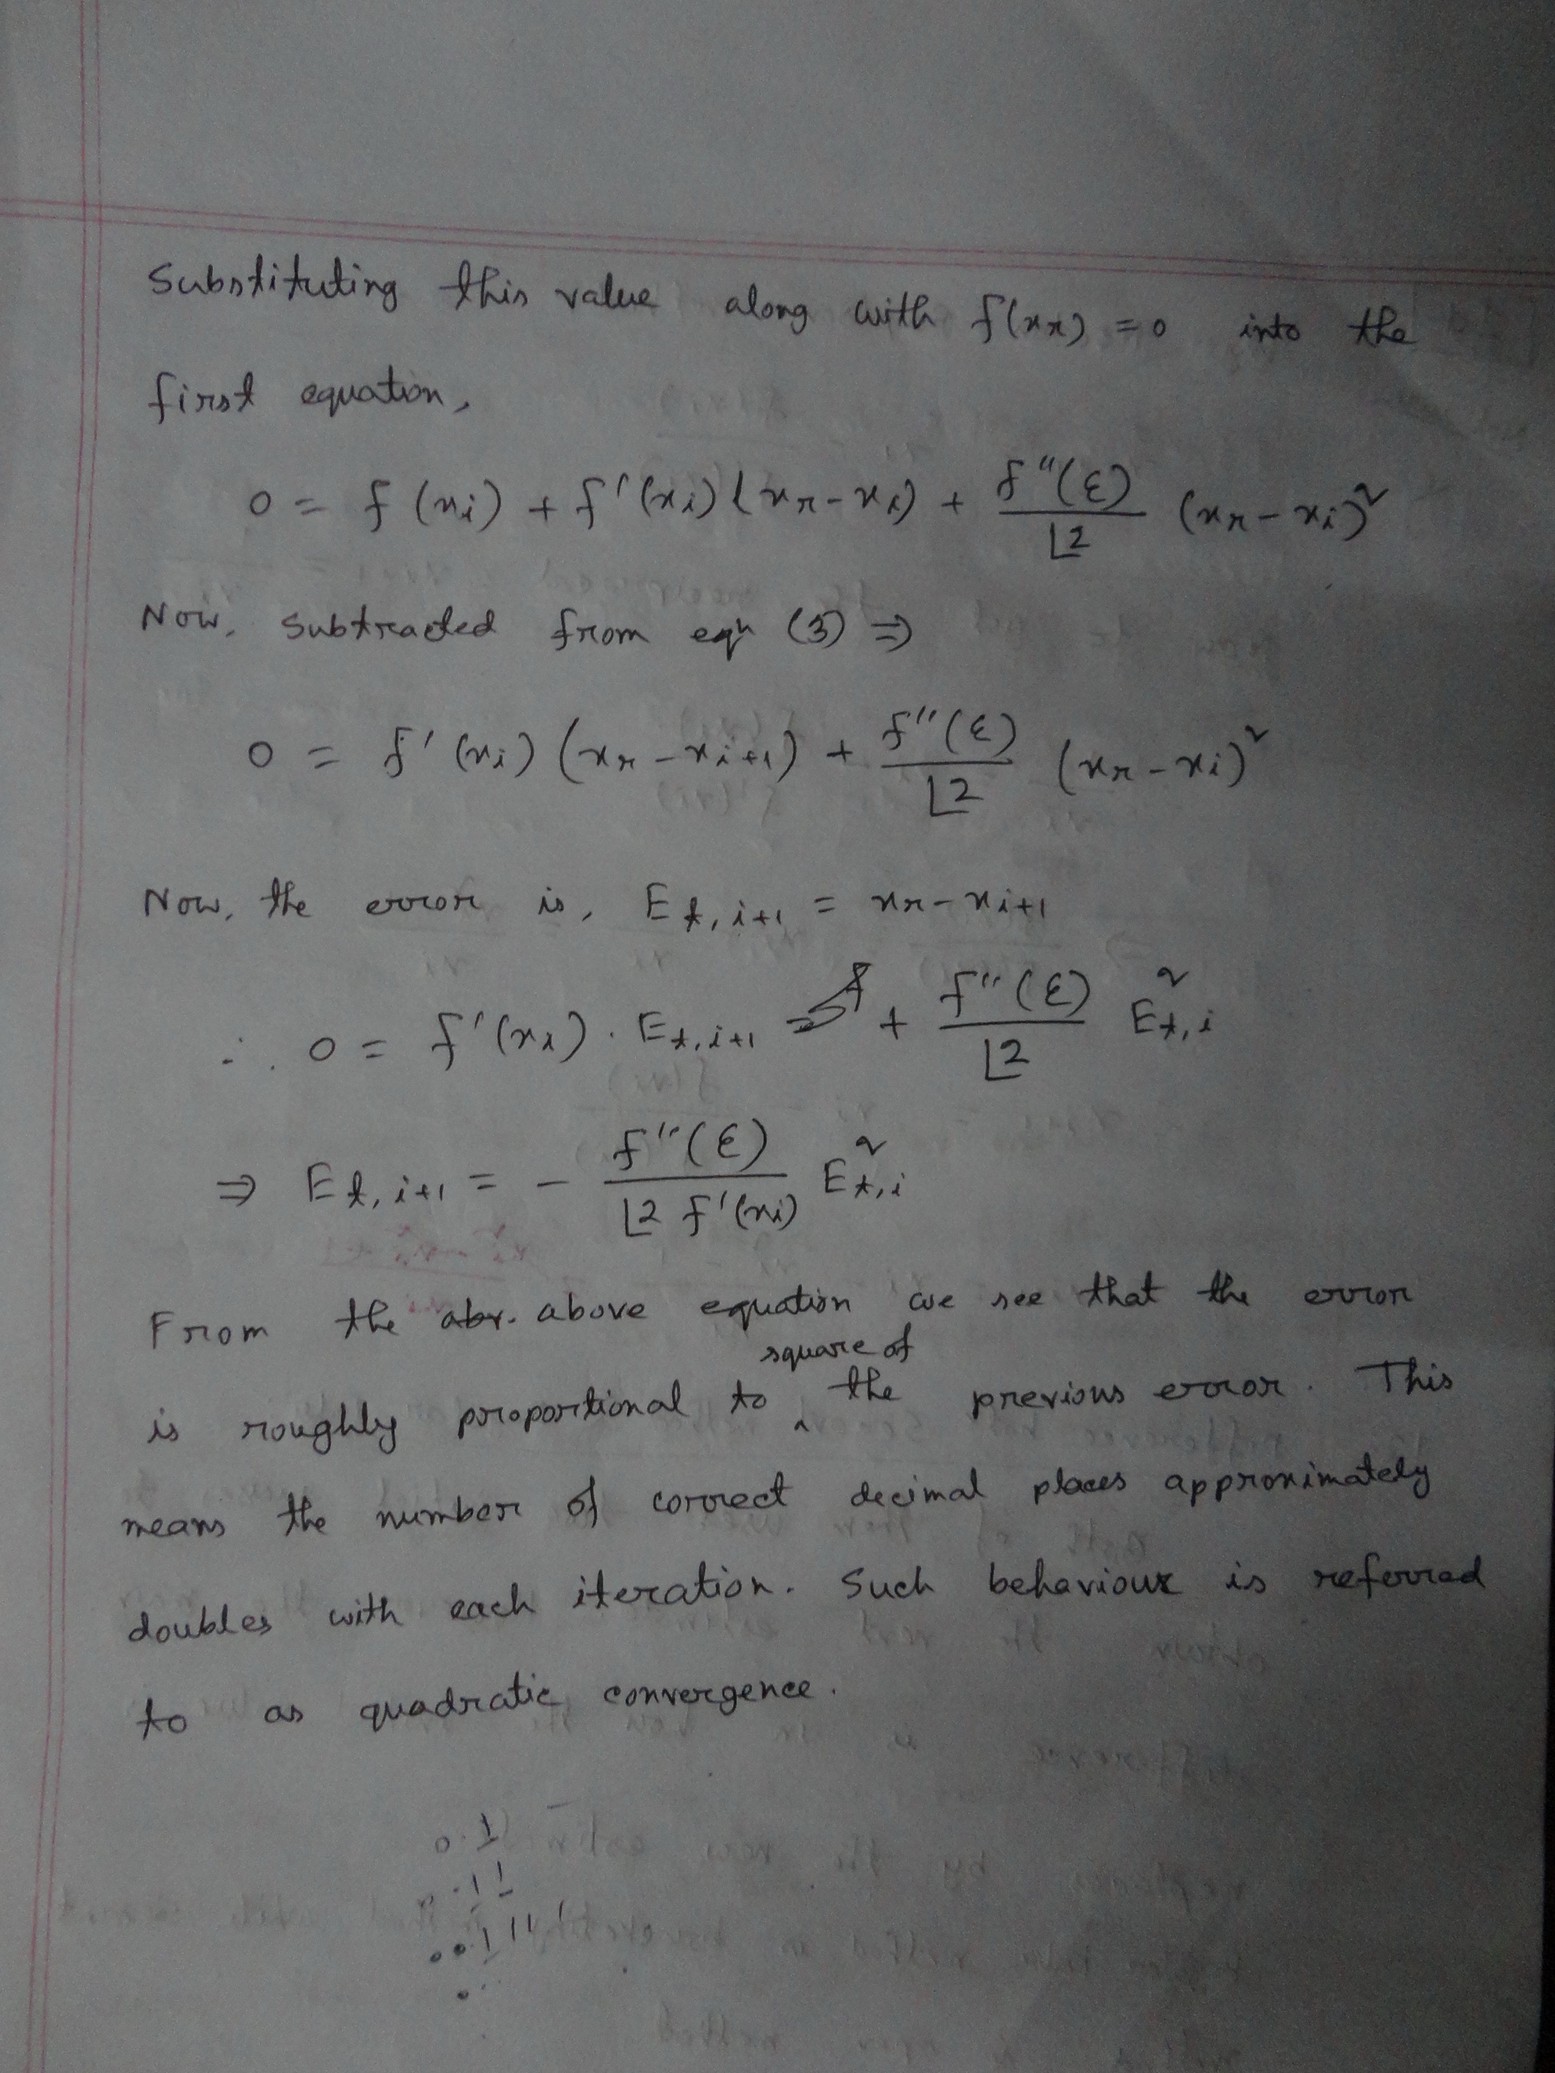 Substituting this value along with f(xr) = 0 into the
first equation,
0 = f(xi) + f'(xi)(xr - xi) + f''(ε)/⌊2 (xr - xi)²
Now, subtracted from eqn (3) ⇒
0 = f'(xi)(xr - xi+1) + f''(ε)/⌊2 (xr - xi)²
Now, the error is, Et,i+1 = xr - xi+1
∴ 0 = f'(xi) · Et,i+1 + f''(ε)/⌊2 E²t,i
⇒ Et,i+1 = - f''(ε)/⌊2 f'(xi) E²t,i
From the abv. above equation we see that the error
is roughly proportional to square of the previous error. This
means the number of correct decimal places approximately
doubles with each iteration. Such behaviour is referred
to as quadratic convergence.
0.1